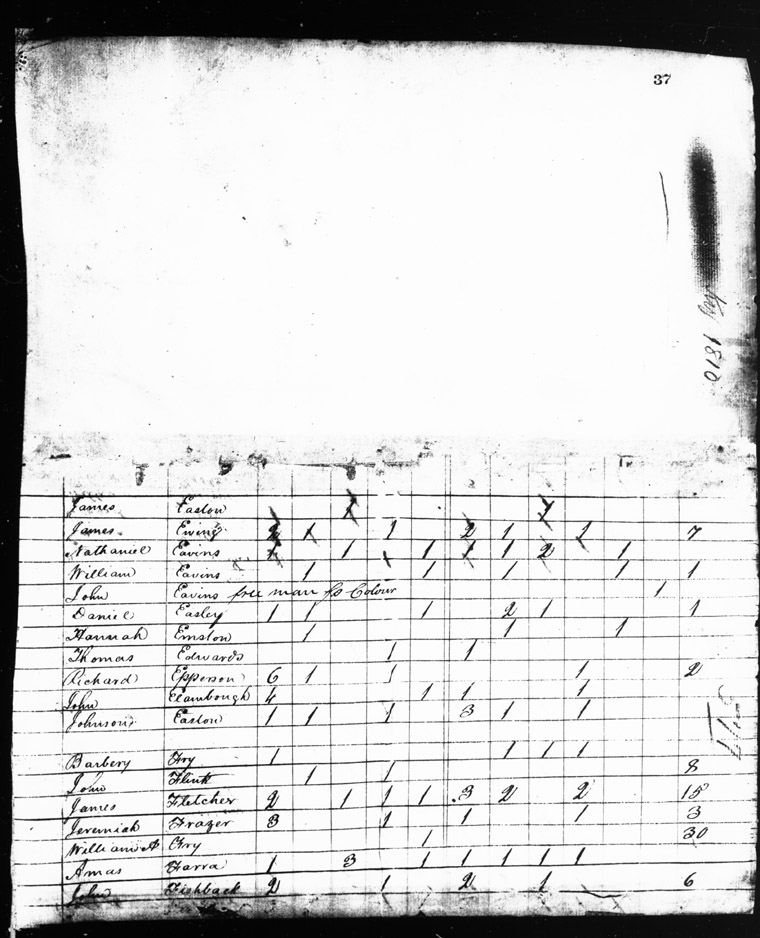 37
Fay 1810
James Easton
James Ewing 2 1 1 2 1 1 7
Nathaniel Eavins 1 1 1 1 2 1
William Eavins 1 1 1 1 1
John Eavins free man of Colour 1
Daniel Easley 1 1 1 2 1 1
Hannah Emston 1 1 1
Thomas Edwards 1 1
Richard Epperson 6 1 1 1 2
John Elambough 4 1 1 1
Johnson Easton 1 1 1 3 1 1
Barbery Fry 1 1 1 1
John Flink 1 1 8
James Fletcher 2 1 1 1 3 2 2 15
Jeremiah Frazer 3 1 1 1 3
William A Fry 1 30
Amas Farra 1 3 1 1 1 1 1
John Fishback 2 1 2 1 6